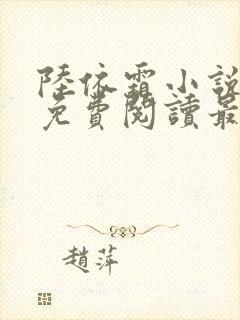 陸依霜小說
免費閱讀最
趙萍